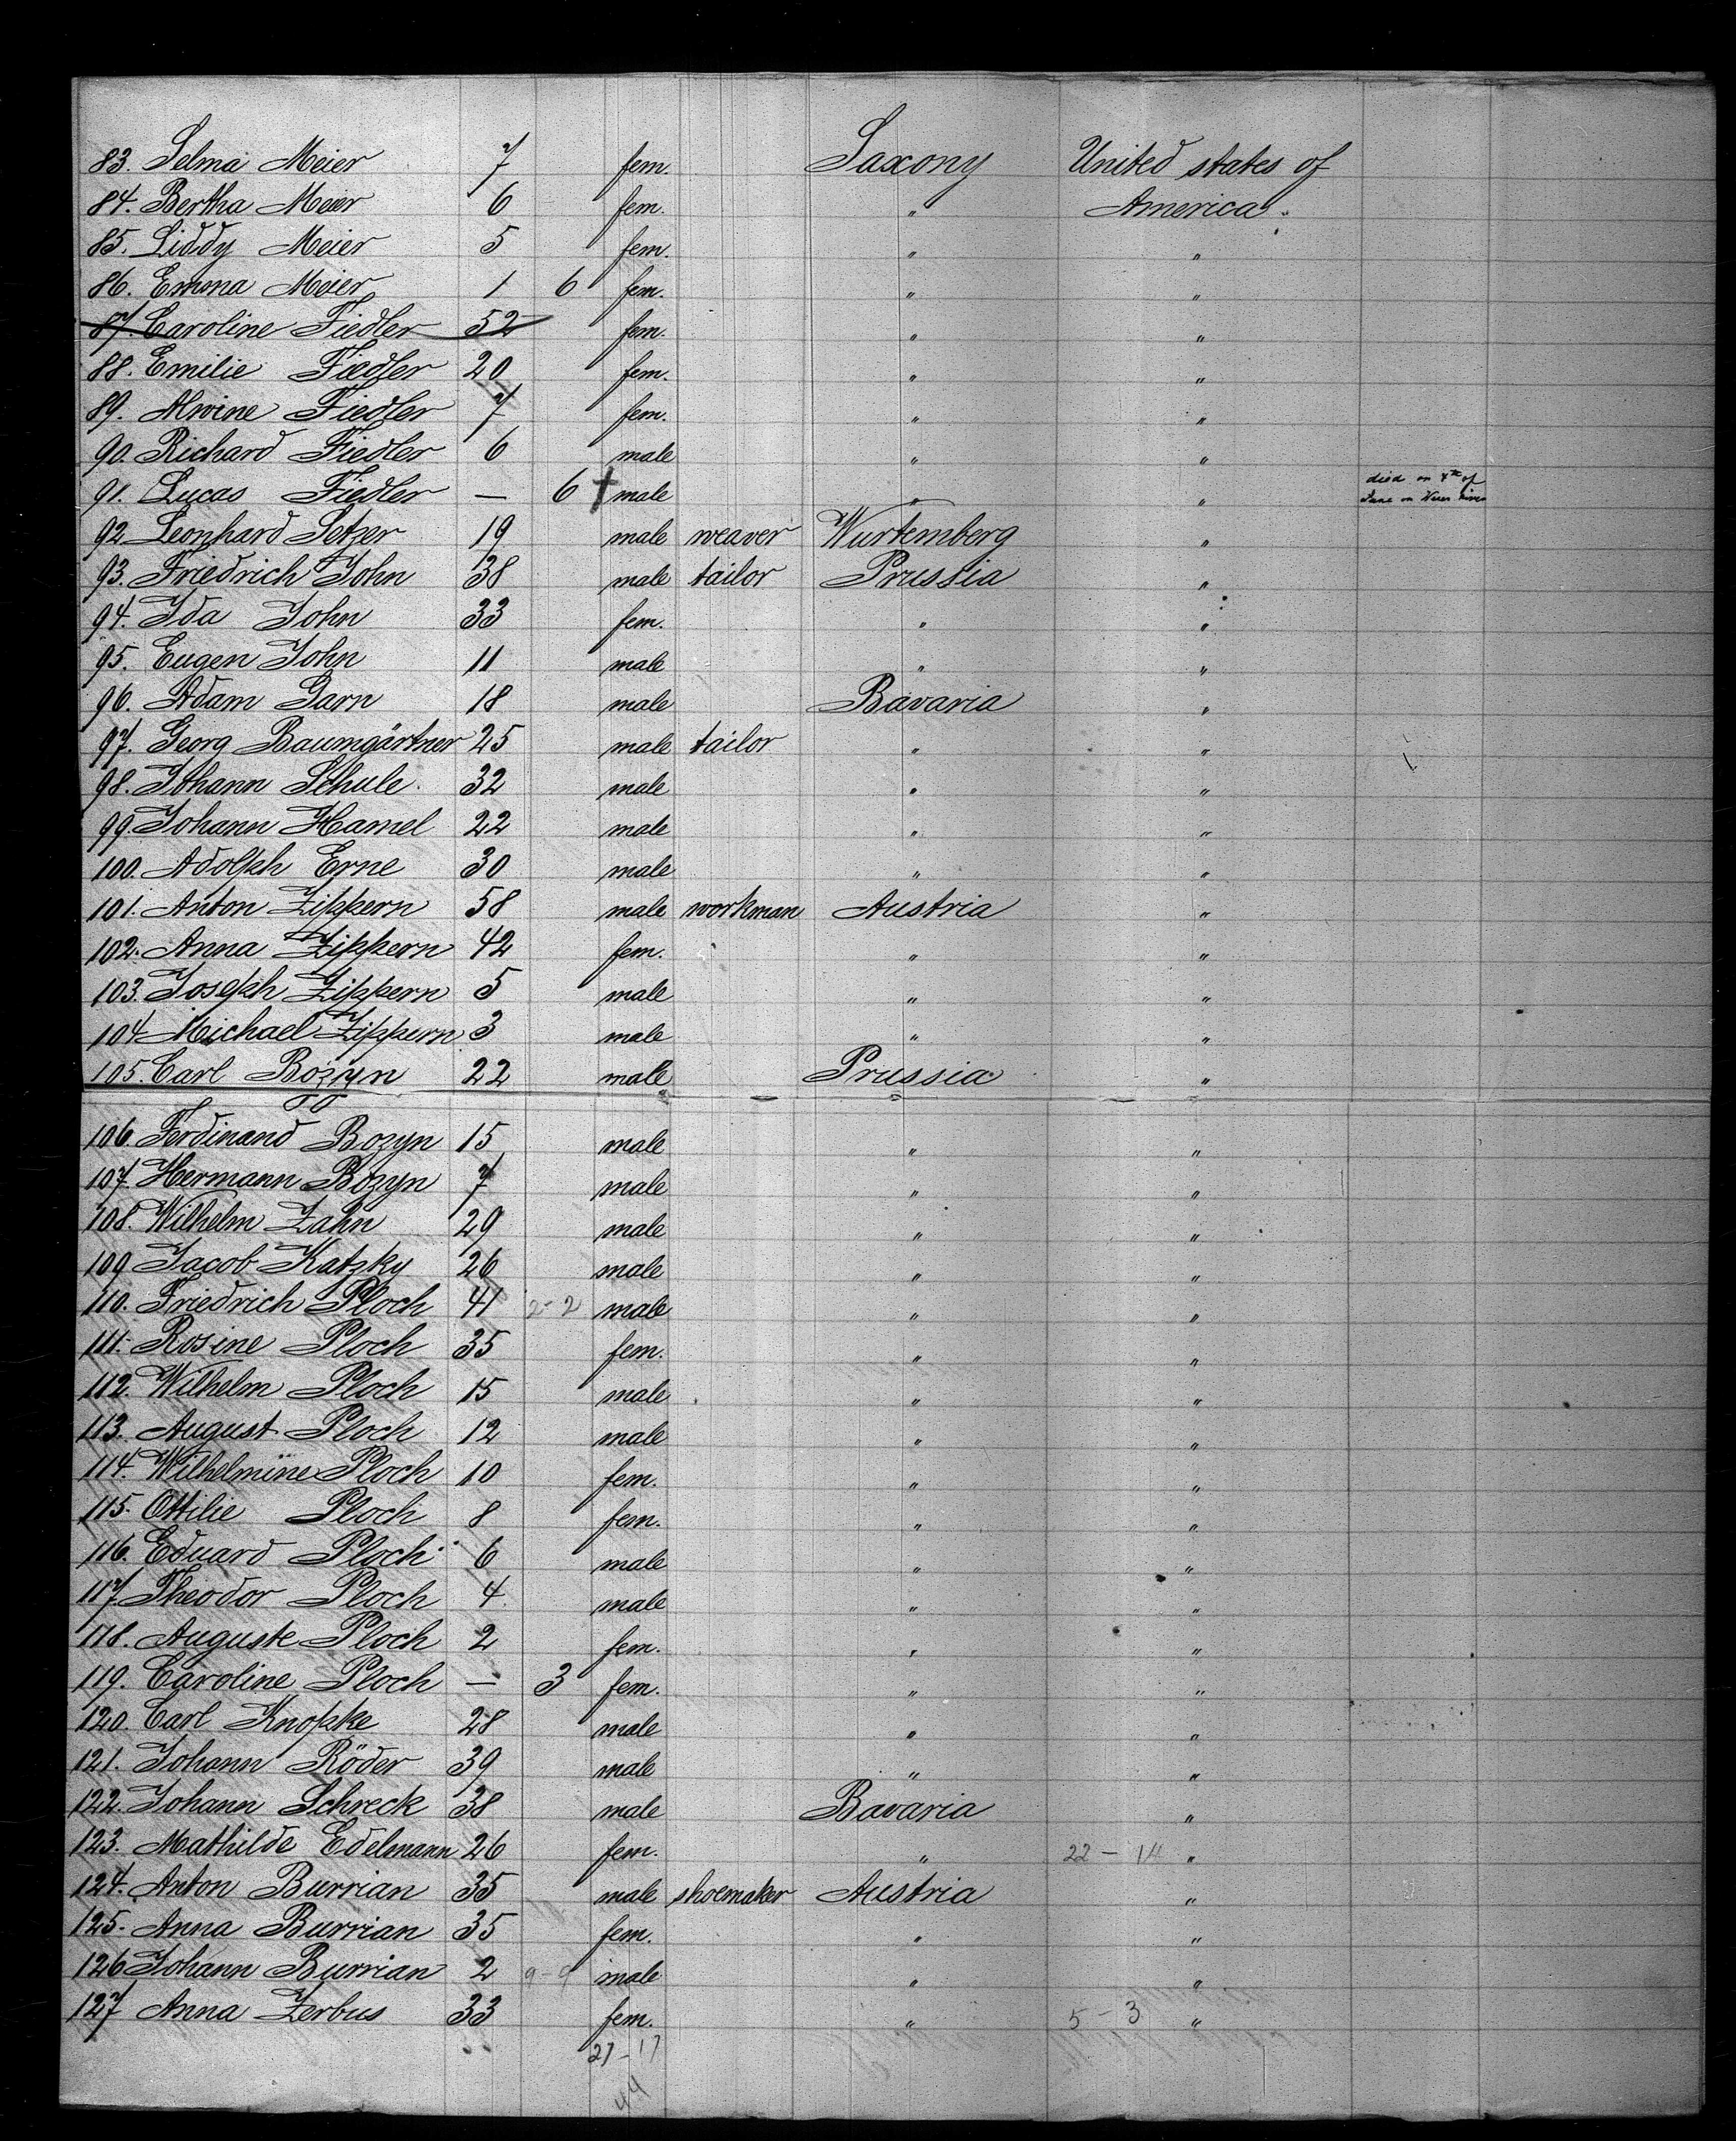 83. Selma Meier 7 fem. Saxony United states of
84. Bertha Meier 6 fem. " America.
85. Liddy Meier 5 fem. " "
86. Emma Meier 1 6 fem. " "
87. Caroline Fiedler 52 fem. " "
88. Emilie Fiedler 20 fem. " "
89. Alwine Fiedler 7 fem. " "
90. Richard Fiedler 6 male " "
91. Lucas Fiedler — 6 † male " " died on 4th of
June on
92 Leonhard Setzer 19 male weaver Wurtemberg "
93. Friedrich John 38 male tailor Prussia "
94. Ida John 33 fem. " "
95. Eugen John 11 male " "
96. Adam Garn 18 male Bavaria "
97. Georg Baumgärtner 25 male tailor " "
98. Johann Schule 32 male " "
99. Johann Hamel 22 male " "
100. Adolph Erne 30 male " "
101. Anton Zippern 58 male workman Austria "
102. Anna Zippern 42 fem. " "
103. Joseph Zippern 5 male " "
104 Michael Zippern 3 male " "
105. Carl Bozyn 22 male Prussia "
106. Ferdinand Bozyn 15 male " "
107. Hermann Bozyn 7 male " "
108. Wilhelm Zahn 29 male " "
109 Jacob Katzky 26 male " "
110. Friedrich Ploch 41 2-2 male " "
111. Rosine Ploch 35 fem. " "
112. Wilhelm Ploch 15 male " "
113. August Ploch 12 male " "
114. Wilhelmine Ploch 10 fem. " "
115. Ottilie Ploch 8 fem. " "
116. Eduard Ploch 6 male " "
117. Theodor Ploch 4 male " "
118. Auguste Ploch 2 fem. " "
119. Caroline Ploch — 3 fem. " "
120. Carl Knopke 28 male " "
121. Johann Röder 39 male " "
122. Johann Schreck 38 male Bavaria "
123. Mathilde Edelmann 26 fem. " 22 - 14 "
124. Anton Burrian 35 male shoemaker Austria "
125. Anna Burrian 35 fem. " "
126 Johann Burrian 2 9-9 male " "
127 Anna Zerbus 33 fem. " 5 - 3 "
27-17
44